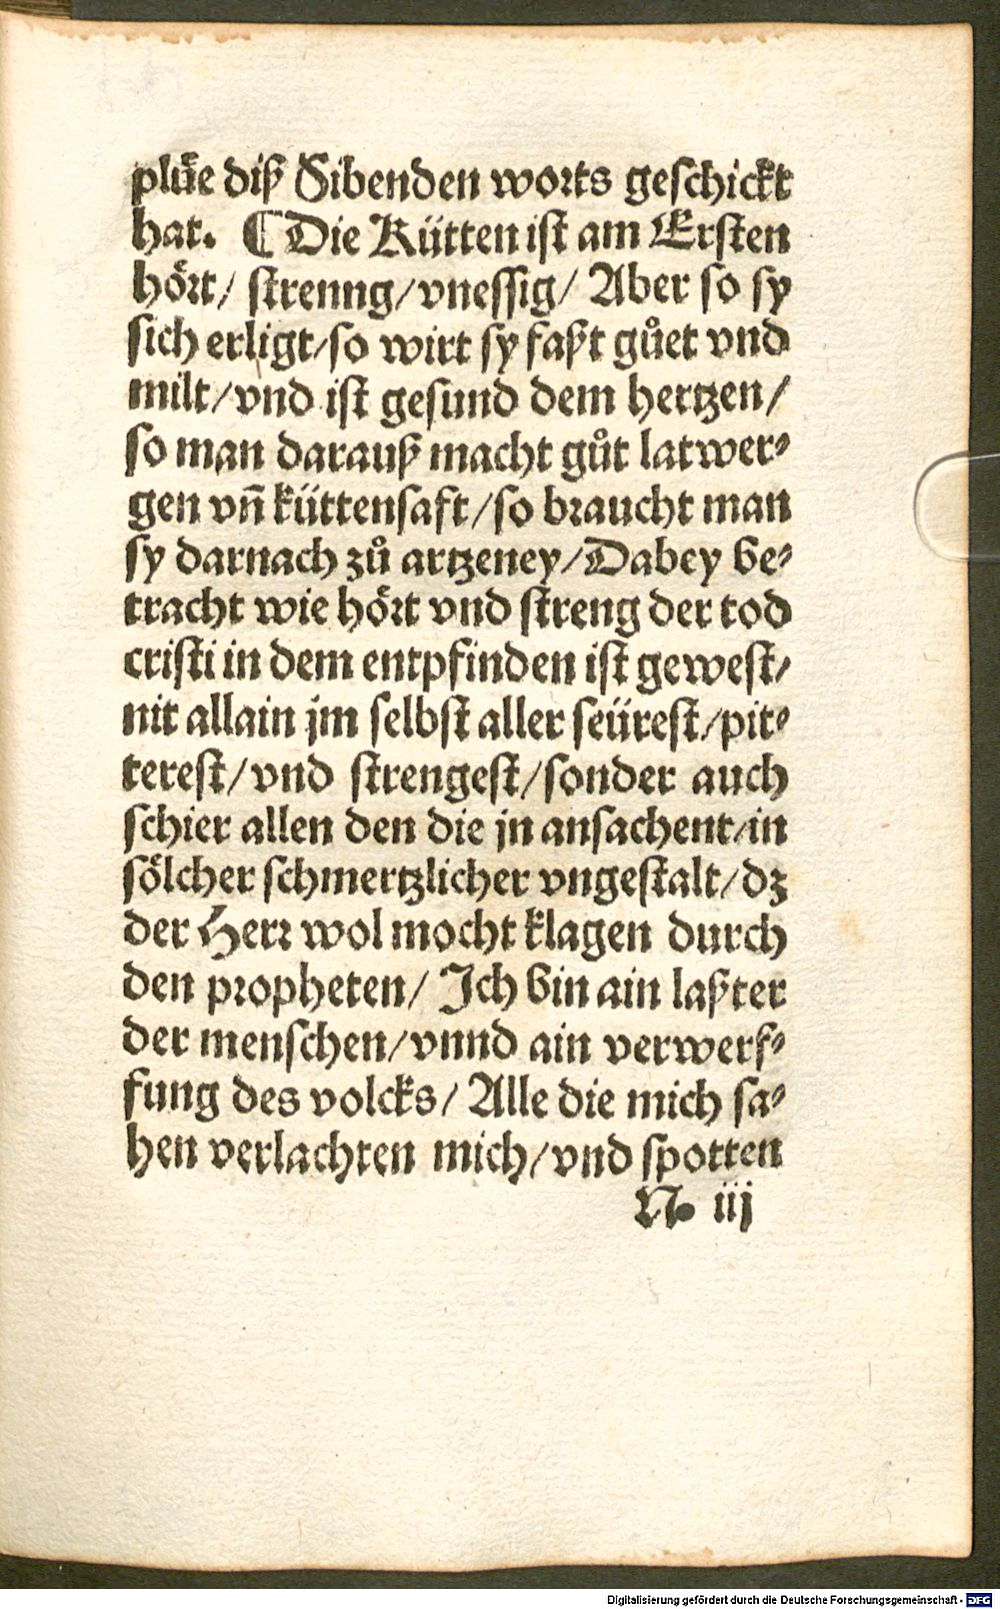 plüe diß Sibenden worts geschickt
hat. ¶ Die Kütten ist am Ersten
hört/ strenng/vnessig/ Aber so sy
sich erligt/so wirt sy faßt gůet vnd
milt/vnd ist gesund dem hertzen/
so man darauß macht gůt latwer⸗
gen vñ küttensaft/so braucht man
sy darnach zů artzeney/Dabey be⸗
tracht wie hört vnd streng der tod
cristi in dem entpfinden ist gewest/
nit allain jm selbst aller seürest/pit⸗
terest/vnd strengest/sonder auch
schier allen den die jn ansachent/in
sölcher schmertzlicher vngestalt/dz
der Herr wol mocht klagen durch
den propheten/ Ich bin ain laßter
der menschen/vnnd ain verwerf⸗
fung des volcks/ Alle die mich sa⸗
hen verlachten mich/vnd spotten
N iij
Digitalisierung gefördert durch die Deutsche Forschungsgemeinschaft - DFG